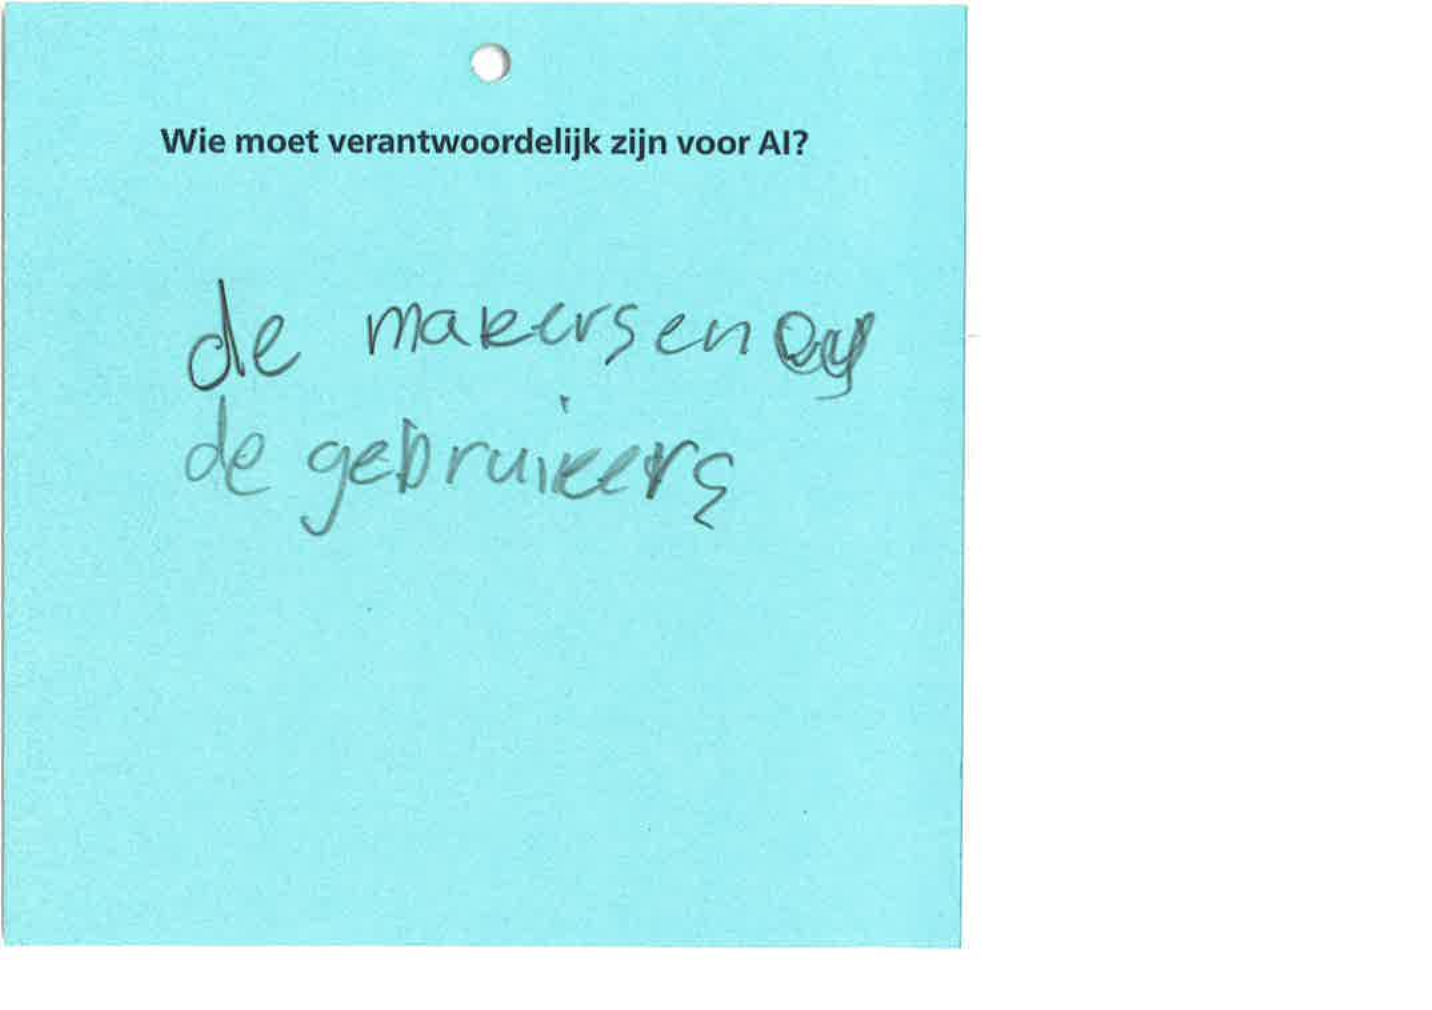 Wie moet verantwoordelijk zijn voor AI?
de makers en
de gebruikers